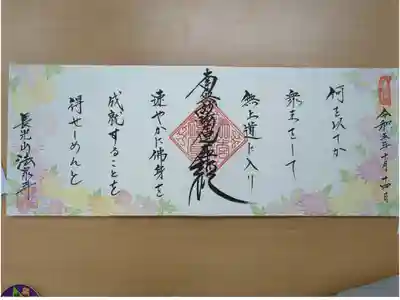 令和五年十月十四日
何を以てか
衆生をして
無上道に入り
南無妙法蓮華経
速やかに佛身を
成就することを
得せしめんと
長光山法泉寺